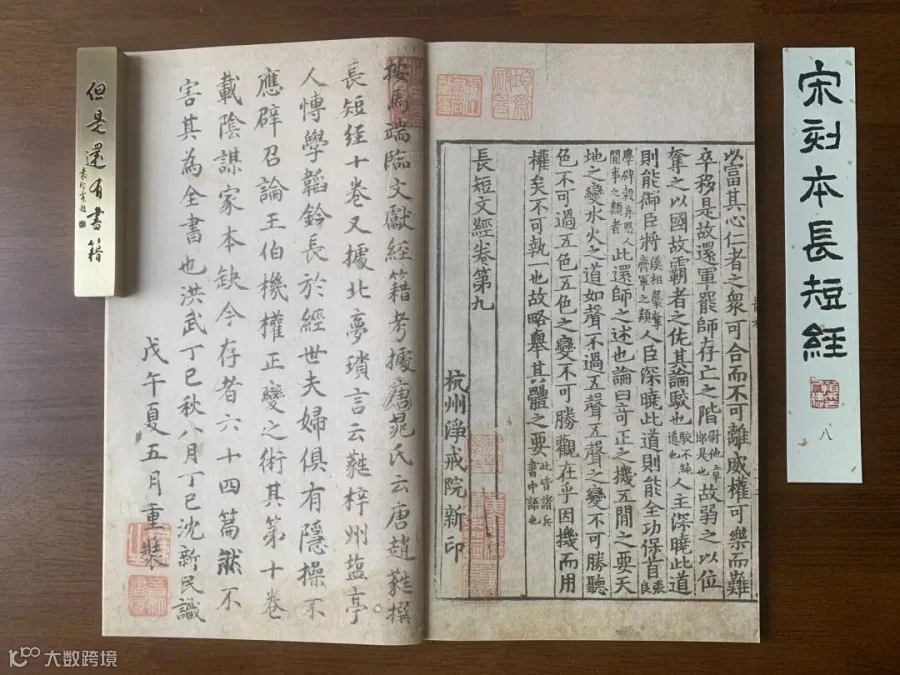 宋刻本長短經
八
以富其心仁者之衆可合而不可離威權可樂而難
卒移是故還軍罷師存亡之階尉他章邯是也故弱之以位
奪之以國故霸者之佐其論駮也駮不純道也人主深曉此道
則能御臣將漢祖襲奪齊軍之類人臣深曉此道則能全功保首張良
學辟穀弃人間事之類者此還師之述也論曰奇正之機五閒之要天
地之變水火之道如聲不過五聲五聲之變不可勝聽
色不可過五色五色之變不可勝觀在乎因機而用
權矣不可執一也故略舉其體之要此皆諸兵書中語也
長短文經卷第九
杭州淨戒院新印
按馬端臨文獻經籍考據唐晁氏云唐趙蕤撰
長短經十卷又據北夢瑣言云蕤梓州塩亭
人博學韜鈐長於經世夫婦俱有隱操不
應辟召論王伯機權正變之術其第十卷
載陰謀家本缺今存者六十四篇然不
害其為全書也洪武丁巳秋八月丁巳沈新民識
戊午夏五月重裝
但是還有書籍
大数跨境